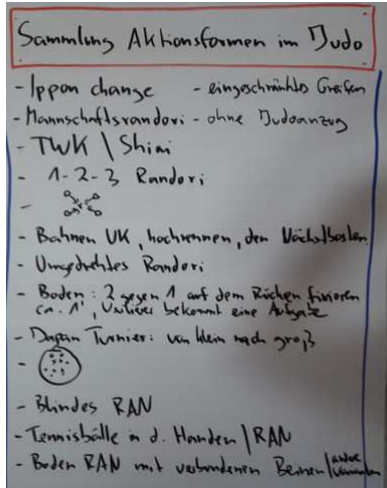 Sammlung Aktionsformen im Judo
- Ippon change - eingeschränktes Greifen
- Mannschaftsrandori - ohne Judoanzug
- TWK \ Shiai
- 1-2-3 Randori
-
- Bahnen UK, hochrennen, den Nächstbesten
- Umgedrehtes Randori
- Boden: 2 gegen 1, auf dem Rücken fixieren
ca. 1', bekommt eine Aufgabe
- Japan Turnier: von klein nach groß
-
- Blindes RAN
- Tennisbälle in d. Händen | RAN
- Boden RAN mit verbundenen Beinen |